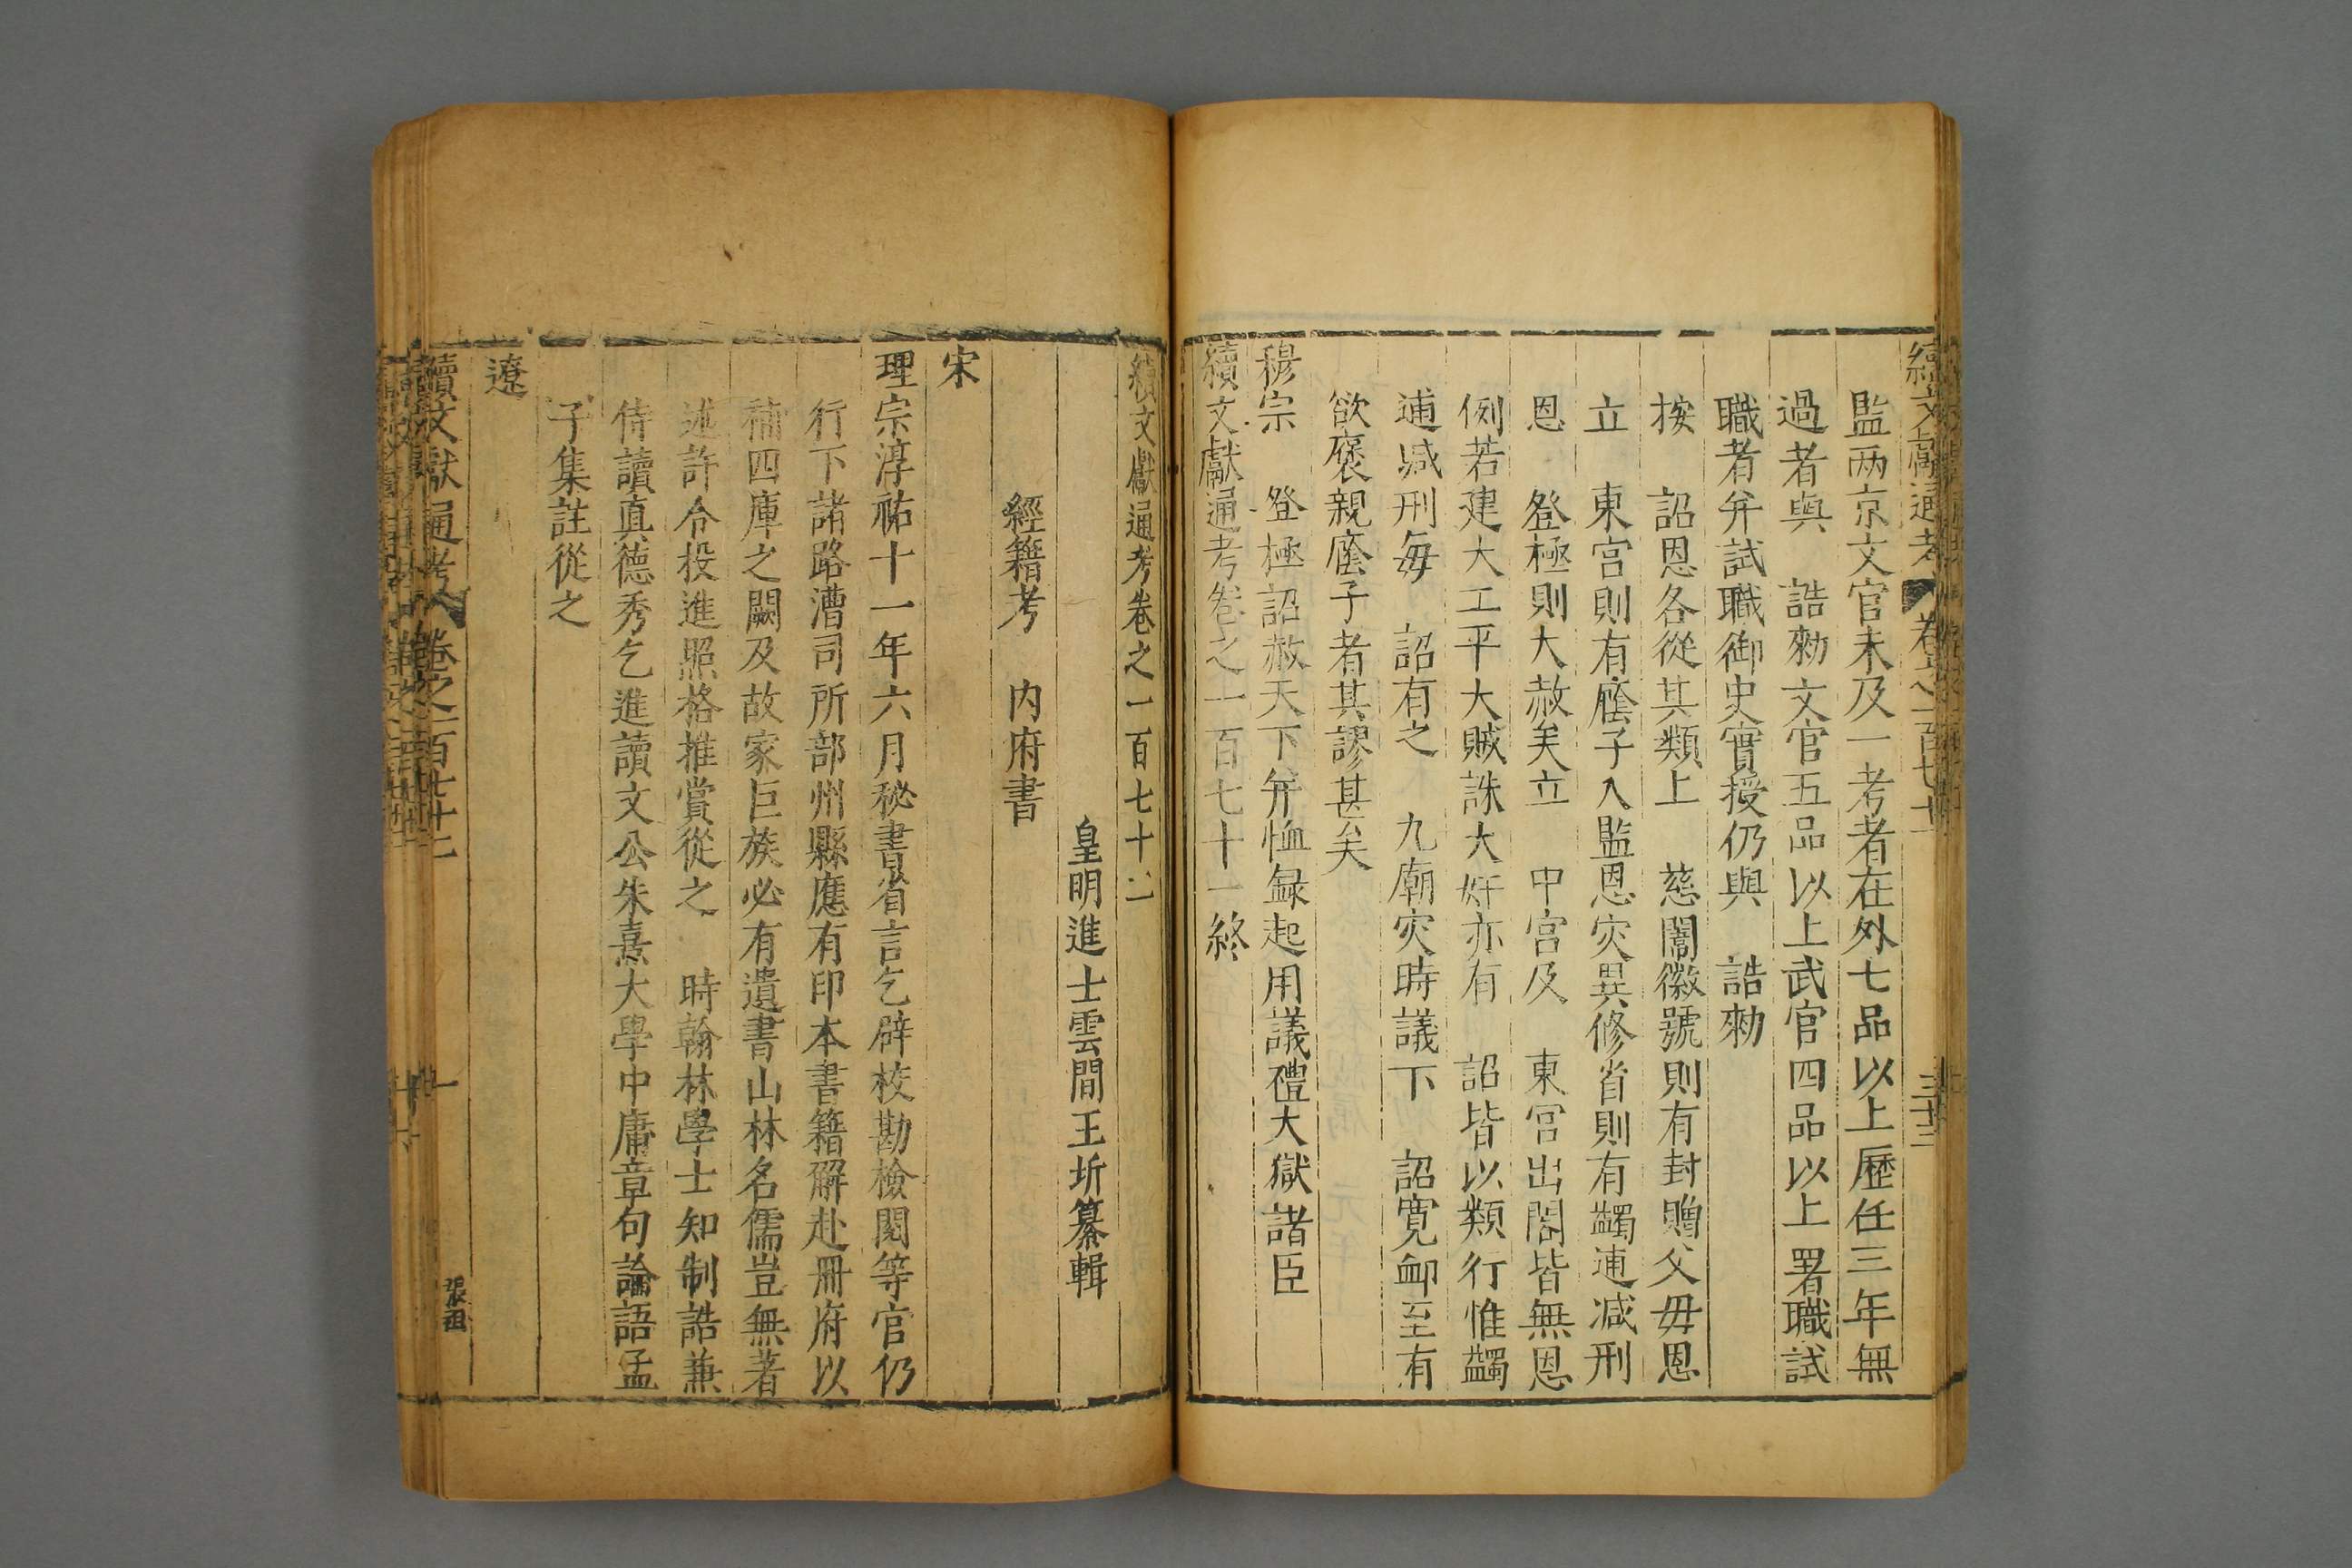 續文獻通考 卷之一百七十一 三十三
監两京文官未及一考者在外七品以上歷任三年無
過者與 誥勑文官五品以上武官四品以上署職試
職者并試職御史實授仍與 誥勑
按 詔恩各從其類上 慈闈徽號則有封贈父母恩
立 東宫則有廕子入監恩灾異修省則有蠲逋减刑
恩 登極則大赦矣立 中宫及 東宫出閣皆無恩
例若建大工平大賊誅大奸亦有 詔皆以類行惟蠲
逋减刑每 詔有之 九廟灾時議下 詔寛卹至有
欲褒親廕子者其謬甚矣
穆宗 登極詔赦天下并恤録起用議禮大獄諸臣
續文獻通考卷之一百七十一終
續文獻通考卷之一百七十二
皇明進士雲間王圻纂輯
經籍考 内府書
宋
理宗淳祐十一年六月秘書省言乞辟校勘檢閱等官仍
行下諸路漕司所部州縣應有印本書籍解赴冊府以
補四庫之闕及故家巨族必有遺書山林名儒豈無著
述許令投進照格推賞從之 時翰林學士知制誥兼
侍讀真德秀乞進讀文公朱熹大學中庸章句論語孟
子集註從之
遼
續文獻通考 卷之一百七十二 一